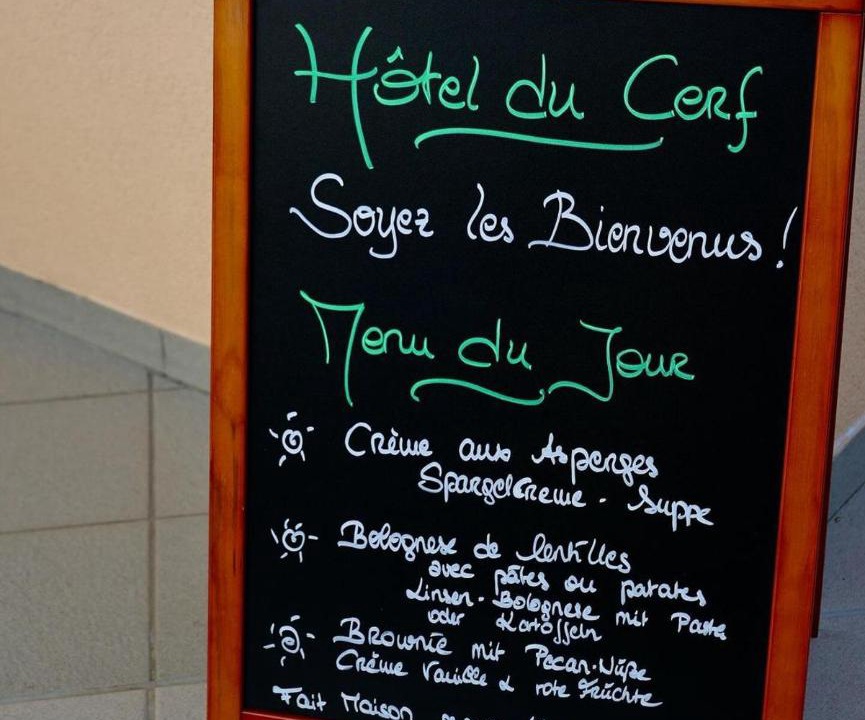 Hôtel du Cerf
Soyez les Bienvenus !
Menu du Jour
Crème aux Asperges
Spargelcreme - Suppe
Bolognese de lentilles
avec pâtes ou patates
Linsen - Bolognese mit Pasta
oder Kartoffeln
Brownie mit Pecan-Nüße
Crème Vanille & rote Früchte
Fait Maison